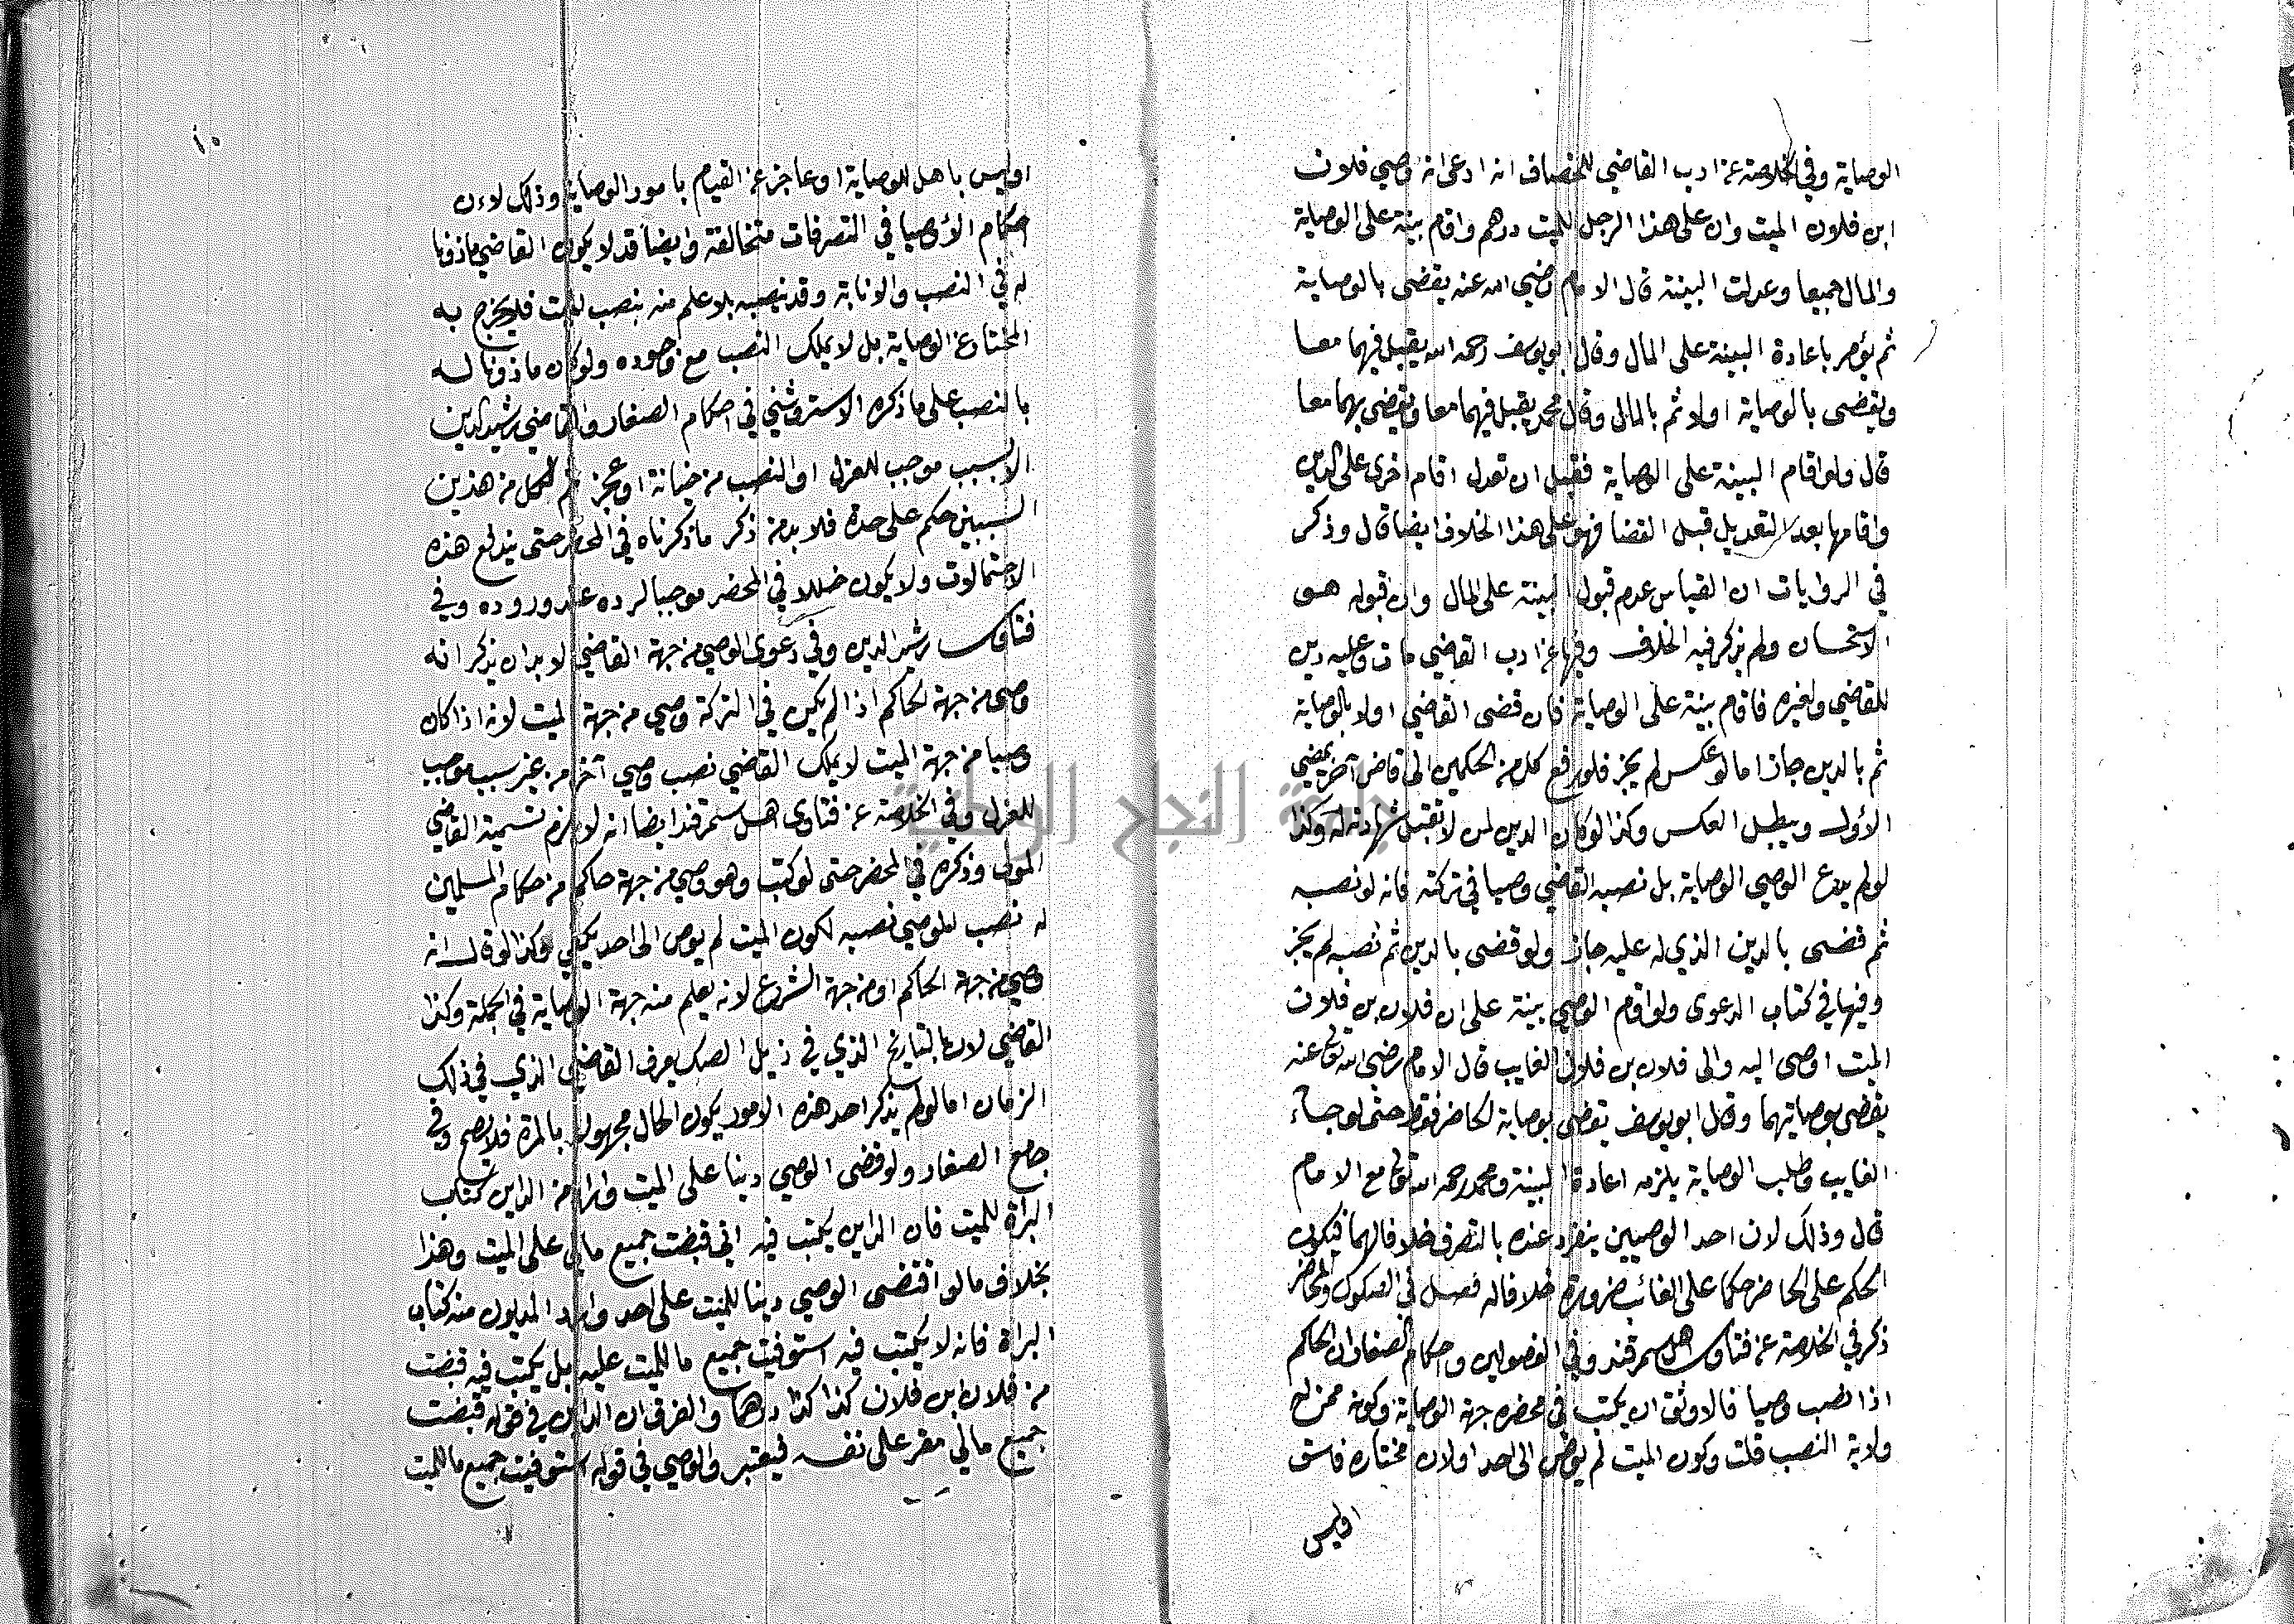 الوصاية وفي الخلاصة عن ادب القاضي للخصاف انه ادعى انه وصي فلان
ابن فلان الميت وان على هذا الرجل للميت درهم واقام بينة على الوصاية
والمال جميعا وعدلت البينة قال الامام رضي الله عنه يقضى بالوصاية
ثم يؤمر باعادة البينة على المال وقال ابو يوسف رحمه الله يقبل فيهما معا
ويقضى بالوصاية اولا ثم بالمال وقال محمد يقبل فيهما معا ويقضي بهما معا
قال ولو اقام البينة على الوصاية فقبل ان تعدل اقام اخرى على الدين
واقامها بعد التعديل قبل القضا فهو على هذا الخلاف ايضا قال وذكر
في الروايات ان القياس عدم قبول البينة على المال وان قبوله هو
الاستحسان ولم يذكر فيه الخلاف وفيها عن ادب القاضي مات وعليه دين
للقاضي ولغيره فاقام بينة على الوصاية فان قضى القاضي اولا بالوصاية
ثم بالدين جاز اما لو عكس لم يجز فلو رفع كل من الحكمين الى قاض آخر يمضي
الأول ويبطل العكس وكذا لو كان الدين لمن لا تقبل شهادته له وكذا
لو لم يدع الوصي الوصاية بل نصبه القاضي وصيا في تركته فانه لو نصبه
ثم قضى بالدين الذي له عليه جاز ولو قضى بالدين ثم نصبه لم يجز
وفيها في كتاب الدعوى ولو اقام الوصي بينة على ان فلان بن فلان
الميت اوصى اليه والى فلان بن فلان الغايب قال الامام رضي الله تع عنه
يقضي بوصايتهما وقال ابو يوسف يقضى بوصاية الحاضر فقط حتى لو جاء
الغايب وطلب الوصاية يلزمه اعادة البينة ومحمد رحمه الله تع مع الامام
قال وذلك لان احد الوصيين ينفرد عنده بالتصرف خلافا لهما فيكون
الحكم على الحاضر حكما على الغائب ضرورة خلافا له فصل في الصكوك والمحاضر
ذكر في الخلاصة عن فتاوى اهل سمرقند وفي الفصولين واحكام الصغار ان الحاكم
اذا نصب وصيا فالاوثق ان يكتب في محضره جهة الوصاية وكونه ممن له
ولاية النصب قلت وكون الميت لم يوص الى احد او لان مختاره فاسق
اوليس
١٠
اوليس باهل للوصاية او عاجز عن القيام بامور الوصاية وذلك لان
احكام الأوصيا في التصرفات متخالفة وايضا قد لا يكون القاضي ماذونا
له في النصب والانابة وقد ينصبه بلا علم منه بنصب الميت فلا يخرج به
المختار عن الوصاية بل لا يملك النصب مع وجوده ولو كان ماذونا له
بالنصب على ما ذكره الاستروشني في احكام الصغار والقاضي رشيد الدين
الا لسبب موجب للعزل او النصب من خيانة او عجز ثم لكل من هذين
السببين حكم على حدة فلا بد من ذكر ما ذكرناه في المحضر حتى يندفع هذه
الاحتمالات ولا يكون خللا في المحضر موجبا لرده عند وروده وفي
فتاوى رشيد الدين وفي دعوى الوصي من جهة القاضي لا بد ان يذكر انه
وصي من جهة الحاكم اذا لم يكن في التركة وصي من جهة الميت لانه اذا كان
وصيا من جهة الميت لا يملك القاضي نصب وصي آخر من غير سبب موجب
للعزل وفي الخلاصة عن فتاوى اهل سمرقند ايضا انه لا يلزم تسمية القاضي
المولى وذكره في المحضر حتى لو كتب وهو وصي من جهة حاكم من حكام المسلمين
له نصب الوصي نصبه لكون الميت لم يوص الى احد يكفي وكذا لو قال انه
وصي من جهة الحاكم او من جهة الشرع لانه يعلم منه جهة الوصاية في الجملة وكذا
القاضي لان بالتاريخ الذي في ذيل الصك يعرف القاضي الذي في ذلك
الزمان اما لو لم يذكر احد هذه الامور يكون الحال مجهولا بالمرة فلا يصح وفي
جامع الصغار ولو قضى الوصي دينا على الميت واراد من الداين كتاب
البراة للميت فان الداين يكتب فيه اني قبضت جميع مالي على الميت وهذا
بخلاف ما لو اقتضى الوصي دينا للميت على احد واراد المديون منه كتاب
البراة فانه لا يكتب فيه استوفيت جميع ما للميت عليه بل يكتب فيه قبضت
من فلان ابن فلان كذا كذا درهما والفرق ان الداين في قوله قبضت
جميع مالي مقر على نفسه فيعتبر والوصي في قوله استوفيت جميع ما للميت
جامعة النجاح الوطنية